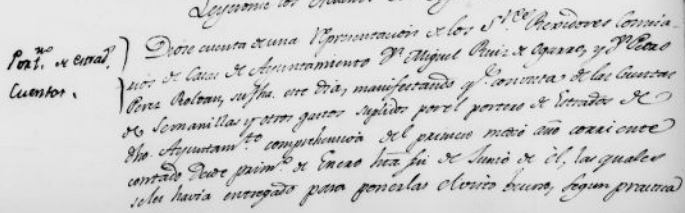 Leyeronse los
Port.ro de estrad.s
Cuentas.
Diose cuenta de una Representacion de los S.res Rexidores Comisa-
rios de Casas de Ayuntamiento D.n Miguel Ruiz de Ogarrio, y D.n Pedro
Perez Roldan, su fha. este dia, manifestando q.e con vista de las Cuentas
de Semanillas y otros gastos suplidos por el portero de Estrados de
dho. Ayuntam.to comprehensiva del primero medio año corriente
contado desde prim.o de Enero hta. fin de Junio de él, las quales
se les havia entregado para ponerlas el visto bueno, segun practica